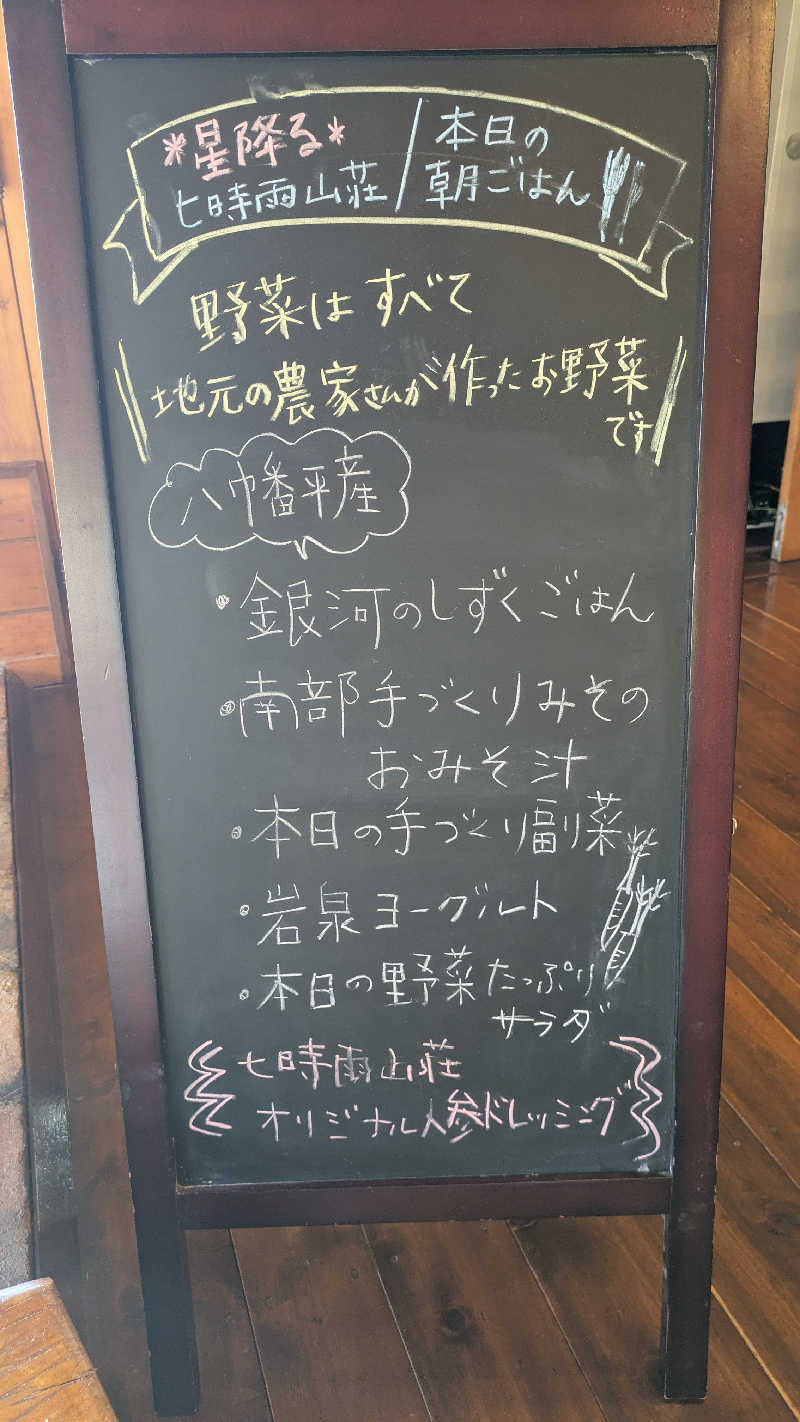 *星降る*
七時雨山荘/本日の
朝ごはん
野菜は すべて
地元の農家さんが作ったお野菜
です
八幡平産
・銀河のしずくごはん
・南部手づくりみその
おみそ汁
・本日の手づくり副菜
・岩泉ヨーグルト
・本日の野菜たっぷり
サラダ
七時雨山荘
オリジナル人参ドレッシング